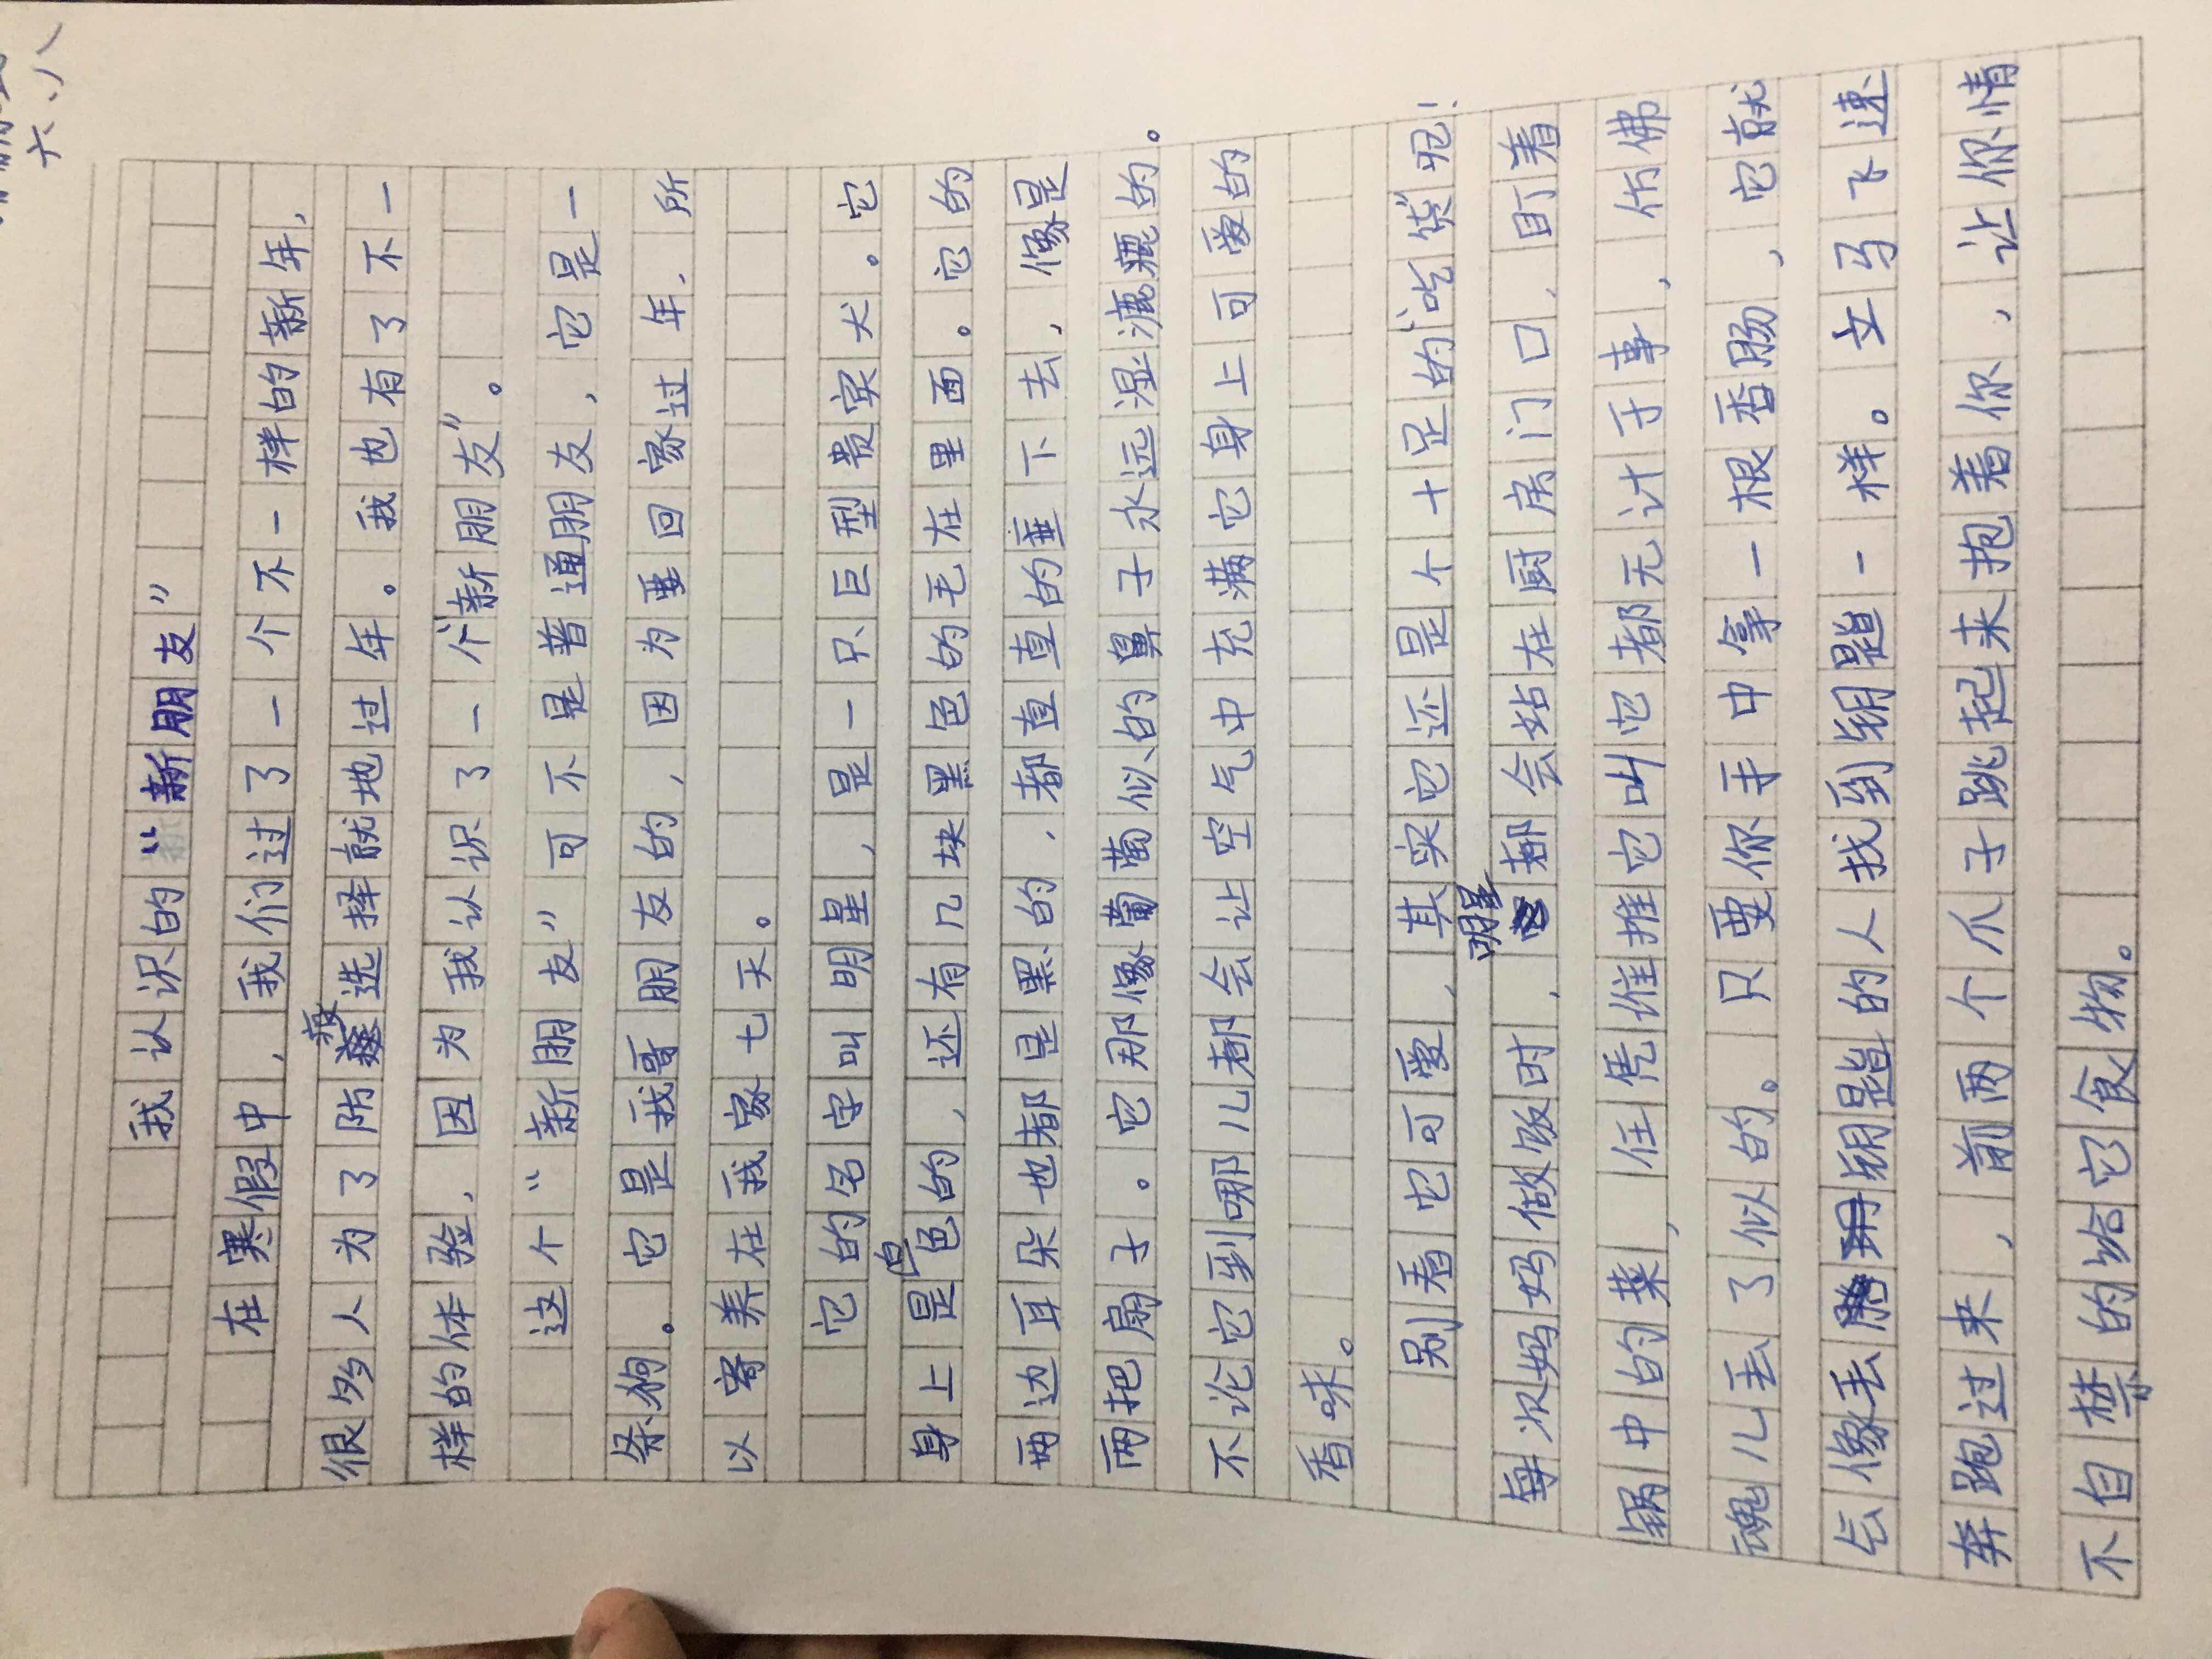 六、八
我认识的“新朋友”
在寒假中，我们过了一个不一样的新年，
很多人为了防疫选择就地过年。我也有了不一
样的体验，因为我认识了一个“新朋友”。
这个“新朋友”可不是普通朋友，它是一
条狗。它是我哥朋友的，因为要回家过年，所
以寄养在我家七天。
它的名字叫明星，是一只巨型贵宾犬。它
身上是白色的，还有几块黑色的毛在里面。它的
两边耳朵也都是黑的，都直直的垂下去，像是
两把扇子。它那像葡萄似的鼻子永远湿漉漉的。
不论它到哪儿都会让空气中充满它身上可爱的
香味。
别看它可爱，其实它还是个十足的“吃货”呢！
每次妈妈做饭时，明星都会站在厨房门口，盯着
锅中的菜，任凭谁推它叫它都无计于事，仿佛
魂儿丢了似的。只要你手中拿一根香肠，它就
会像丢钥匙的人找到钥匙一样。立马飞速
奔跑过来，前两个爪子跳起来抱着你，让你情
不自禁的给它食物。